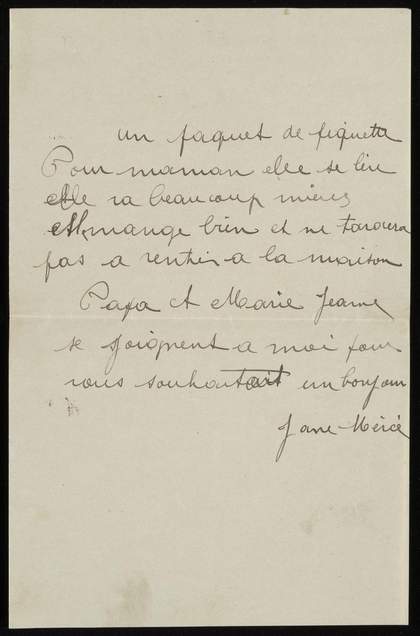 un paquet de
Pour maman elle se lève
elle va beaucoup mieux
elle mange bien et ne tardera
pas a rentrer a la maison
Papa et Marie Jeanne
se joignent a moi pour
vous souhaitait un bonjour
Jane